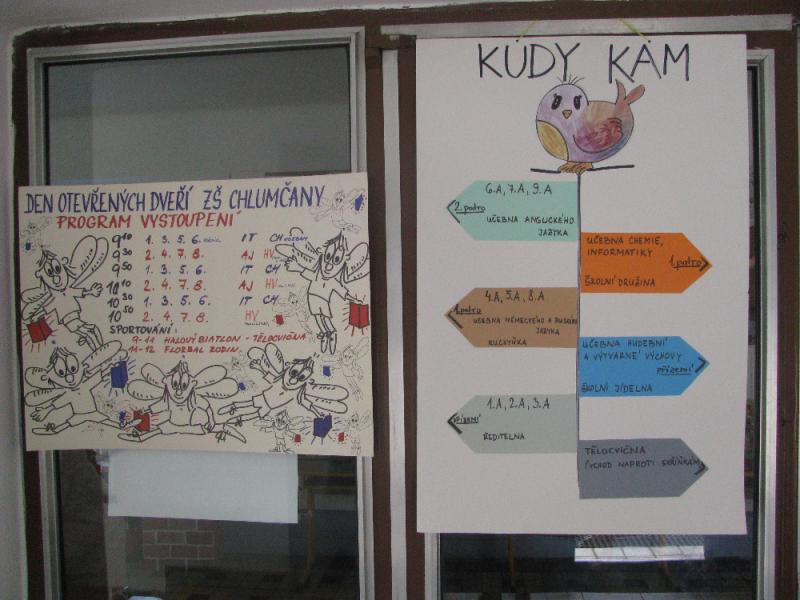 DEN OTEVŘENÝCH DVEŘÍ ZŠ CHLUMČANY
PROGRAM VYSTOUPENÍ
9¹⁰ 1. 3. 5. 6. IT CH
9³⁰ 2. 4. 7. 8. AJ HV
9⁵⁰ 1. 3. 5. 6. IT CH
10¹⁰ 2. 4. 7. 8. AJ HV
10³⁰ 1. 3. 5. 6. IT CH
10⁵⁰ 2. 4. 7. 8. HV
SPORTOVÁNÍ:
9-11 HALOVÝ BIATLON - TĚLOCVIČNA
11-12 FLORBAL RODIN
KUDY KAM
6.A, 7.A, 9.A
2. patro
UČEBNA ANGLICKÉHO
JAZYKA
UČEBNA CHEMIE,
INFORMATIKY
1. patro
ŠKOLNÍ DRUŽINA
4.A, 5.A, 8.A
1. patro
UČEBNA NĚMECKÉHO A RUSKÉHO
JAZYKA
KUCHYŇKA
UČEBNA HUDEBNÍ
A VÝTVARNÉ VÝCHOVY
PŘÍZEMÍ
ŠKOLNÍ JÍDELNA
1.A, 2.A, 3.A
PŘÍZEMÍ
ŘEDITELNA
TĚLOCVIČNA
(VCHOD NAPROTI SKŘÍŇKÁM)